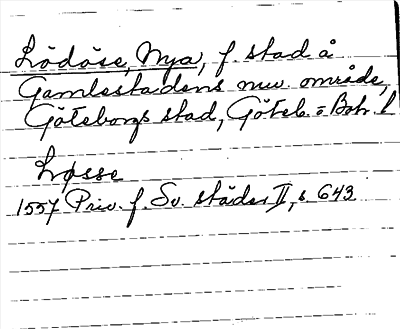 Lödöse, Nya, f. stad å
Gamlestadens nuv. område,
Göteborgs stad, Göteb. o Boh. l
Løsse
1557 Priv. f. Sv. städer II, s 643